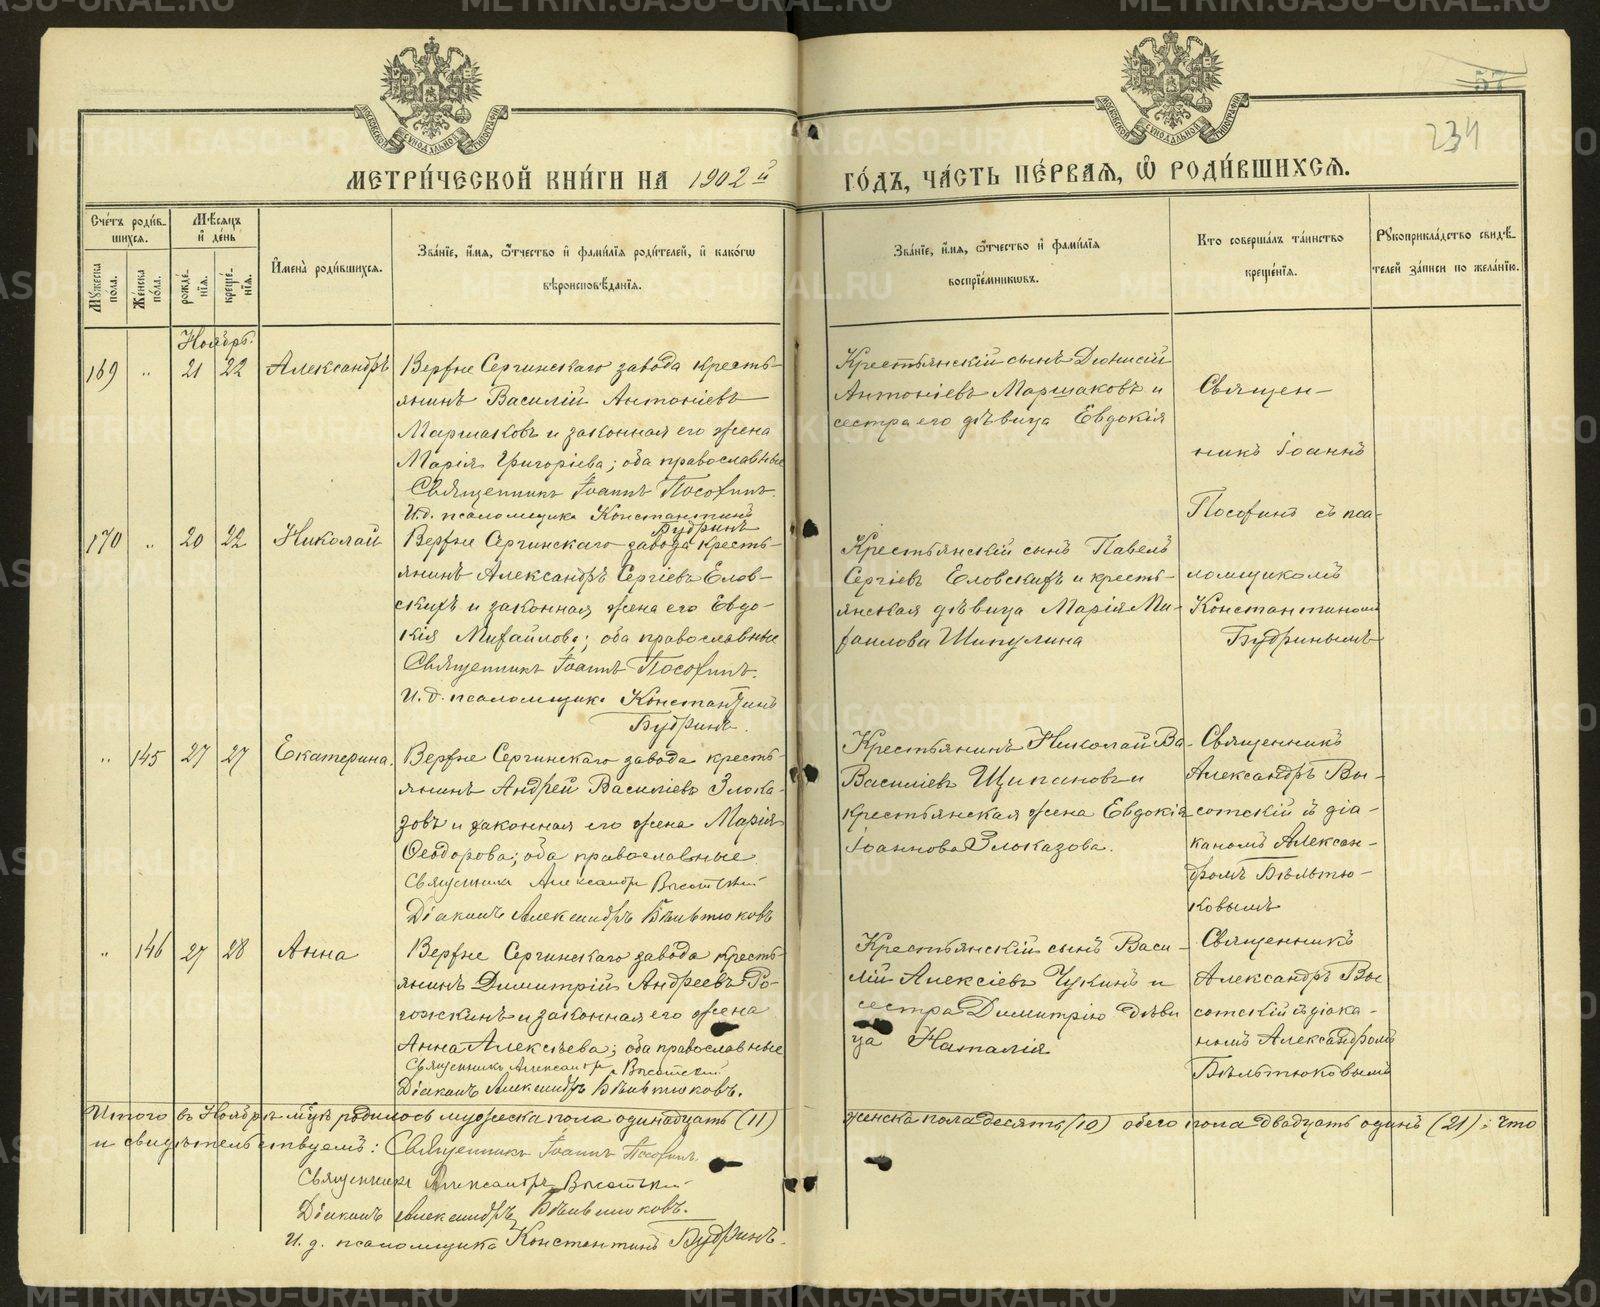 57
234
МОСКОВСКОЙ СѴНОДАЛЬНОЙ ТИПОГРАФІИ
МЕТРИ́ЧЕСКОЙ КНИ́ГИ НА 1902й ГО́ДЪ, ЧА́СТЬ ПЕ́РВАѦ, Ѽ РОДИ́ВШИХСѦ.
Сче́тъ роди́в-
шихсѧ.
Мѣ́сѧцъ
и҆ де́нь
Мꙋ́жеска
по́ла.
Же́нска
по́ла.
рожде́-
нїѧ.
креще́-
нїѧ.
И҆мена̀ роди́вшихсѧ.
Зва́нїе, и҆́мѧ, ѻ҆́тчество и҆ фами́лїѧ роди́телей, и҆ како́гѡ
вѣроисповѣ́данїѧ.
Зва́нїе, и҆́мѧ, ѻ҆́тчество и҆ фами́лїѧ
воспрїе́мникѡвъ.
Кто̀ соверша́лъ та́инство
креще́нїѧ.
Рꙋкоприкла́дство свидѣ́-
телей за́писи по жела́нїю.
Ноябрь.
169 " 21 22 Александръ
Верхне Сергинскаго завода кресть-
янинъ Василій Антоніевъ
Маршаковъ и законная его жена
Марія Григоріева; оба православные
Священникъ Іоаннъ Пософинъ.
И.д. псаломщика Константинъ
Будринъ
Крестьянскій сынъ Діонисій
Антоніевъ Маршаковъ и
сестра его дѣвица Евдокія
Священ-
никъ Іоаннъ
Пософинъ съ пса-
ломщикомъ
Константиномъ
Будринымъ
170 " 20 22 Николай
Верхне Сергинскаго завода кресть-
янинъ Александръ Сергіевъ Елов-
скихъ и законная жена его Евдо-
кія Михайлова; оба православные
Священникъ Іоаннъ Пософинъ.
И.д. псаломщика Константинъ
Будринъ.
Крестьянскій сынъ Павелъ
Сергіевъ Еловскихъ и кресть-
янская дѣвица Марія Ми-
хаилова Шипулина
" 145 27 27 Екатерина.
Верхне Сергинскаго завода кресть-
янинъ Андрей Василіевъ Злока-
зовъ и законная его жена Марія
Ѳеодорова; оба православные.
Священникъ Александръ Высотскій
Діаконъ Александръ Бѣльтюковъ
Крестьянинъ Николай Ва-
Василіевъ Щипановъ и
крестьянская жена Евдокія
Іоаннова Злоказова.
Священникъ
Александръ Вы-
сотскій съ діа-
кономъ Алексан-
дромъ Бѣльтю-
ковымъ
" 146 27 28 Анна
Верхне Сергинскаго завода кресть-
янинъ Димитрій Андреевъ Ро-
гожкинъ и законная его жена
Анна Алексіева; оба православные
Священникъ Александръ Высотскій
Діаконъ Александръ Бѣльтюковъ.
Крестьянскій сынъ Васи-
лій Алексіевъ Чукинъ и
сестра Димитрію дѣви
ца Наталія
Священникъ
Александръ Вы
сотскій съ діако-
номъ Александромъ
Бѣльтюковымъ
Итого въ Ноябрѣ м-цѣ родилось мужеска пола одинадцать (11) женска пола десять (10) обего пола двадцать одинъ (21); что
и свидѣтельствуемъ: Священникъ Іоаннъ Пософинъ.
Священникъ Александръ Высотскій
Діаконъ Александръ Бѣльтюковъ.
И. д. псаломщика Константинъ Будринъ.
METRIKI.GASO-URAL.RU